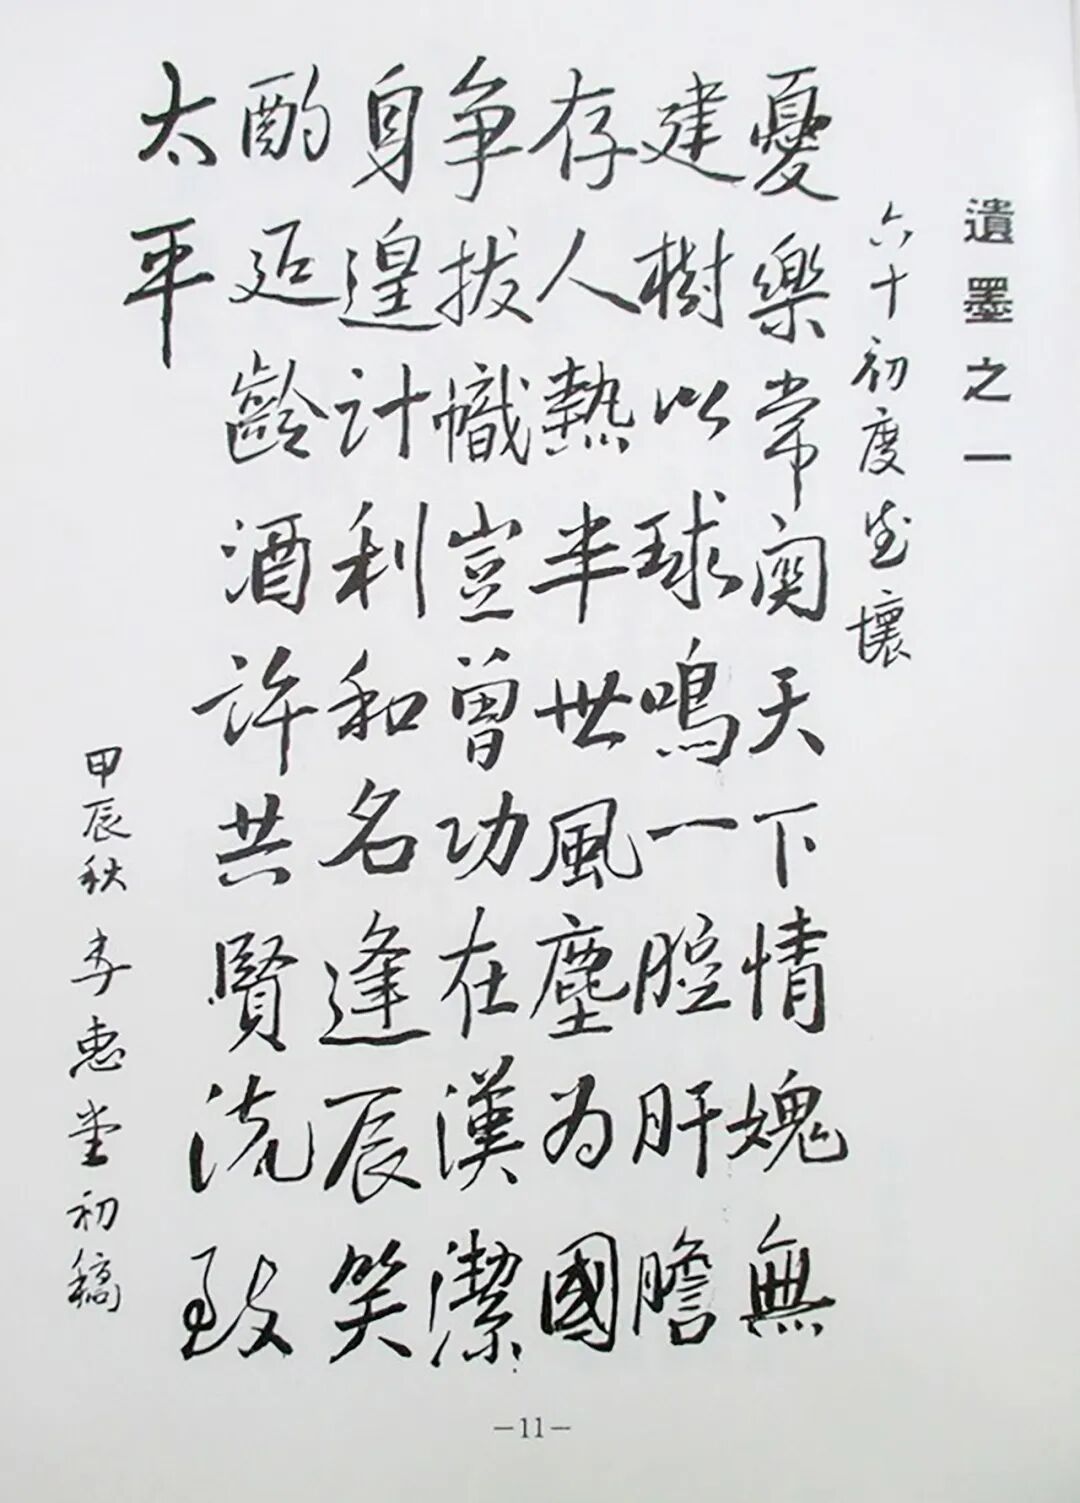 遺墨之一
六十初度感懷
憂樂常關天下情愧無
建樹以球鳴一腔肝膽
存人熱半世風塵為國
争拔幟豈曾功在漢潔
身遑計利和名逢辰笑
酌延齡酒許共賢流致
太平
甲辰秋 李惠堂初稿
—11—